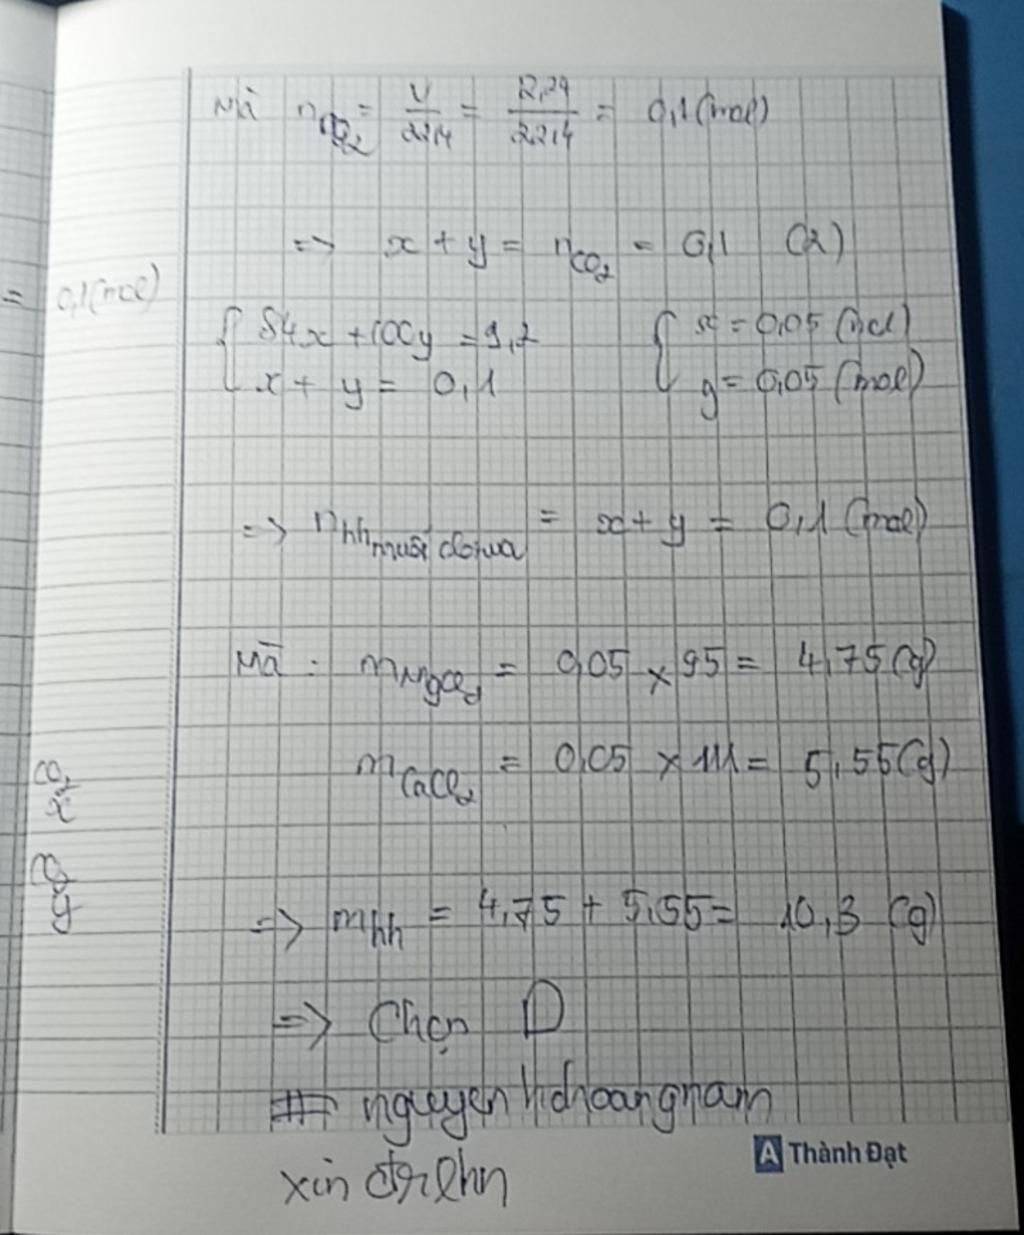 Mà nCO2 = V/22,4 = 2,24/22,4 = 0,1 (mol)
=> x + y = nCO2 = 0,1 (2)
= 0,1 (mol)
{ 84x + 100y = 9,2 { x = 0,05 (mol)
x + y = 0,1 y = 0,05 (mol)
=> nhh muối clorua = x + y = 0,1 (mol)
Mà : mMgCl2 = 0,05 x 95 = 4,75 (g)
mCaCl2 = 0,05 x 111 = 5,55 (g)
CO2
x
CO2
y
=> mhh = 4,75 + 5,55 = 10,3 (g)
=> Chọn D
# nguyenhdhoangnam
xin
A Thành Đạt